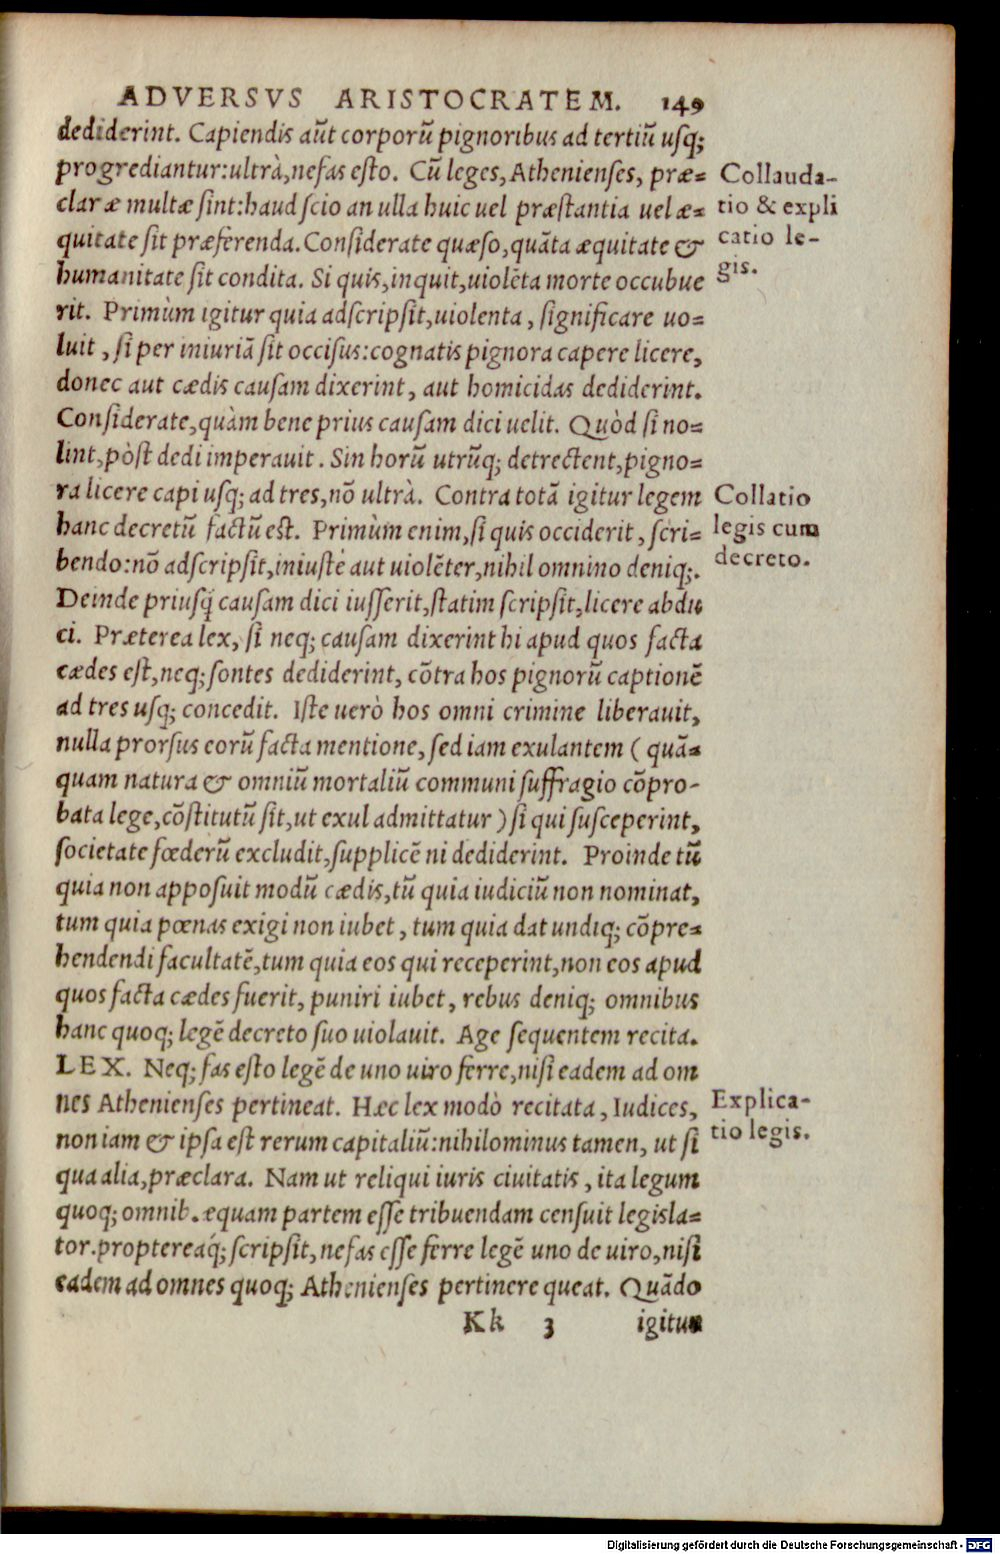 ADVERSVS ARISTOCRATEM. 149
dediderint. Capiendis aūt corporū pignoribus ad tertiū usq;
progrediantur: ultrà, nefas esto. Cū leges, Athenienses, præ=
claræ multæ sint: haud scio an ulla huic uel præstantia uel æ=
quitate sit præferenda. Considerate quæso, quāta æquitate &
humanitate sit condita. Si quis, inquit, uiolēta morte occubue
rit. Primùm igitur quia adscripsit, uiolenta, significare uo=
luit, si per iniuriā sit occisus: cognatis pignora capere licere,
donec aut cædis causam dixerint, aut homicidas dediderint.
Considerate, quàm bene prius causam dici uelit. Quòd si no=
lint, pòst dedi imperauit. Sin horū utrūq; detrectent, pigno=
ra licere capi usq; ad tres, nō ultrà. Contra totā igitur legem
hanc decretū factū est. Primùm enim, si quis occiderit, scri=
bendo: nō adscripsit, iniustè aut uiolēter, nihil omnino deniq;.
Deinde priusq̃ causam dici iusserit, statim scripsit, licere abdu
ci. Præterea lex, si neq; causam dixerint hi apud quos facta
cædes est, neq; sontes dediderint, cōtra hos pignorū captionē
ad tres usq; concedit. Iste uerò hos omni crimine liberauit,
nulla prorsus eorū facta mentione, sed iam exulantem ( quā=
quam natura & omniū mortaliū communi suffragio cōpro-
bata lege, cōstitutū sit, ut exul admittatur ) si qui susceperint,
societate fœderū excludit, supplicē ni dediderint. Proinde tū
quia non apposuit modū cædis, tū quia iudiciū non nominat,
tum quia pœnas exigi non iubet, tum quia dat undiq; cōpre=
hendendi facultatē, tum quia eos qui receperint, non eos apud
quos facta cædes fuerit, puniri iubet, rebus deniq; omnibus
hanc quoq; legē decreto suo uiolauit. Age sequentem recita.
LEX. Neq; fas esto legē de uno uiro ferre, nisi eadem ad om
nes Athenienses pertineat. Hæc lex modò recitata, Iudices,
non iam & ipsa est rerum capitaliū: nihilominus tamen, ut si
qua alia, præclara. Nam ut reliqui iuris ciuitatis, ita legum
quoq; omnib. æquam partem esse tribuendam censuit legisla=
tor. proptereaq́; scripsit, nefas esse ferre legē uno de uiro, nisi
eadem ad omnes quoq; Athenienses pertinere queat. Quādo
Kk 3 igitur
Collauda-
tio & expli
catio le-
gis.
Collatio
legis cum
decreto.
Explica-
tio legis.
Digitalisierung gefördert durch die Deutsche Forschungsgemeinschaft - DFG